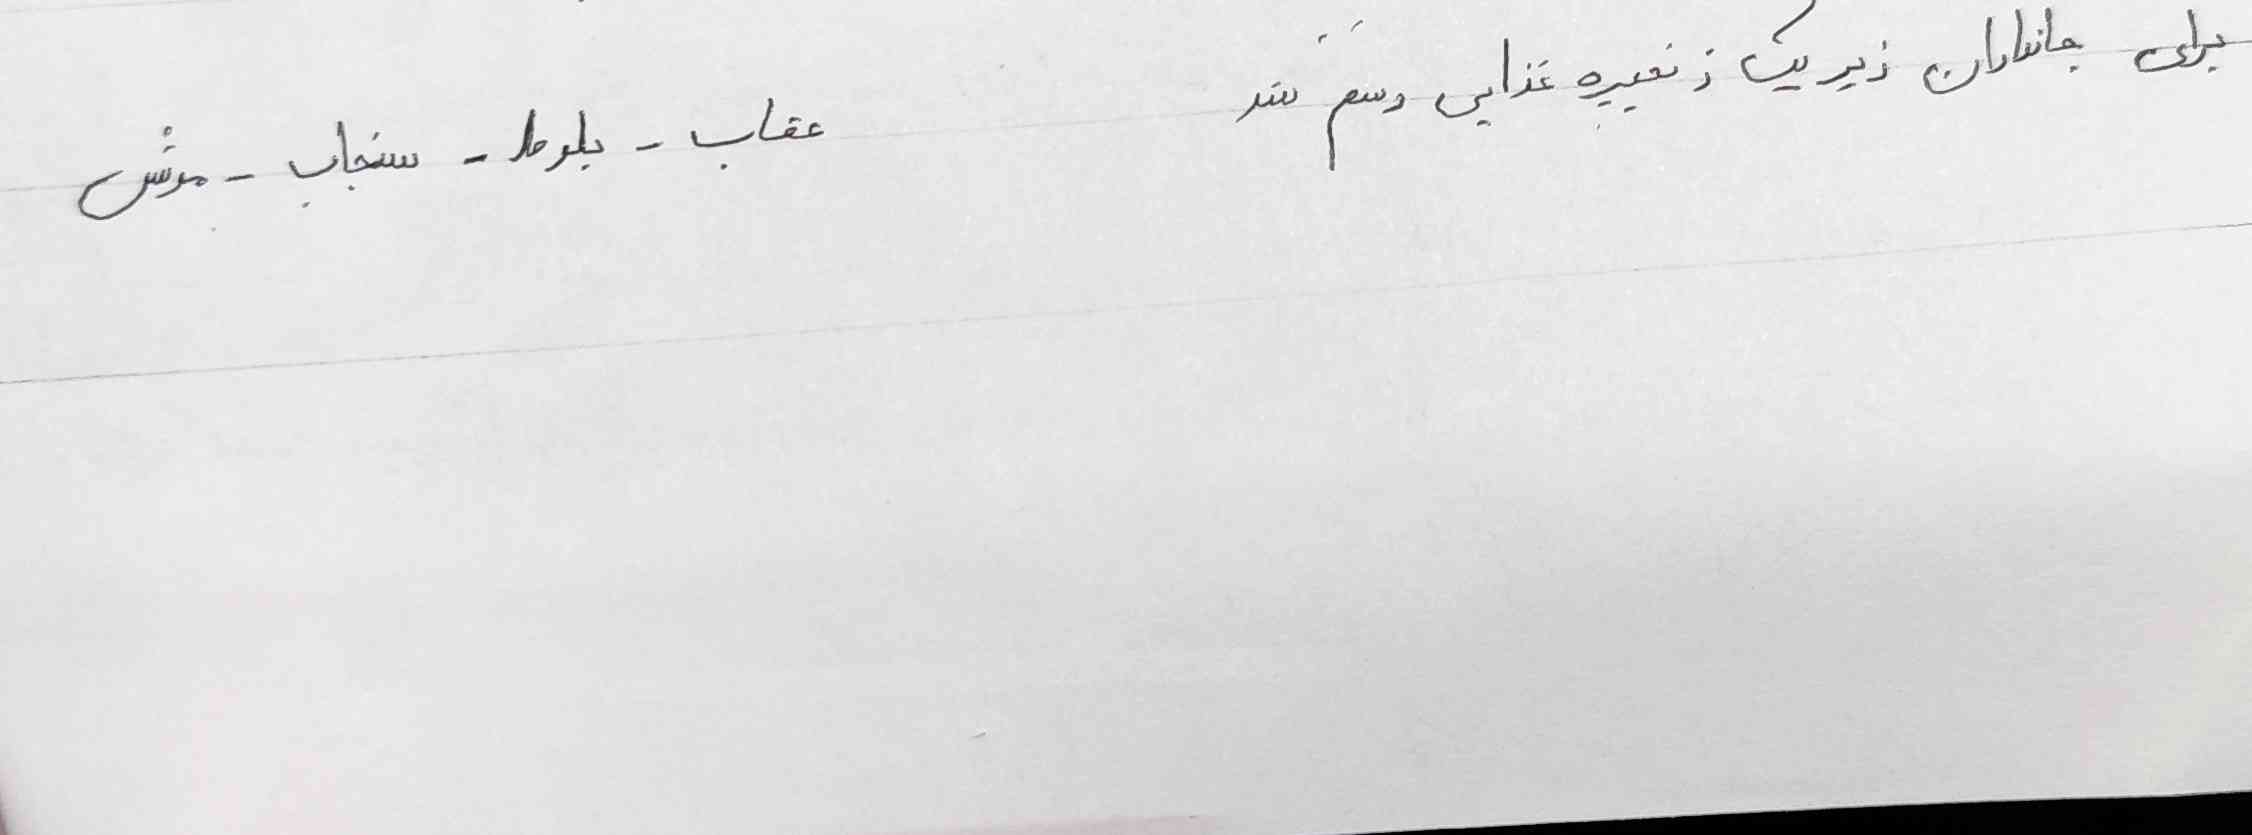 برای جانداران زیر یک زنجیره غذایی رسم کنید
عقاب - بلوط - سنجاب - موش